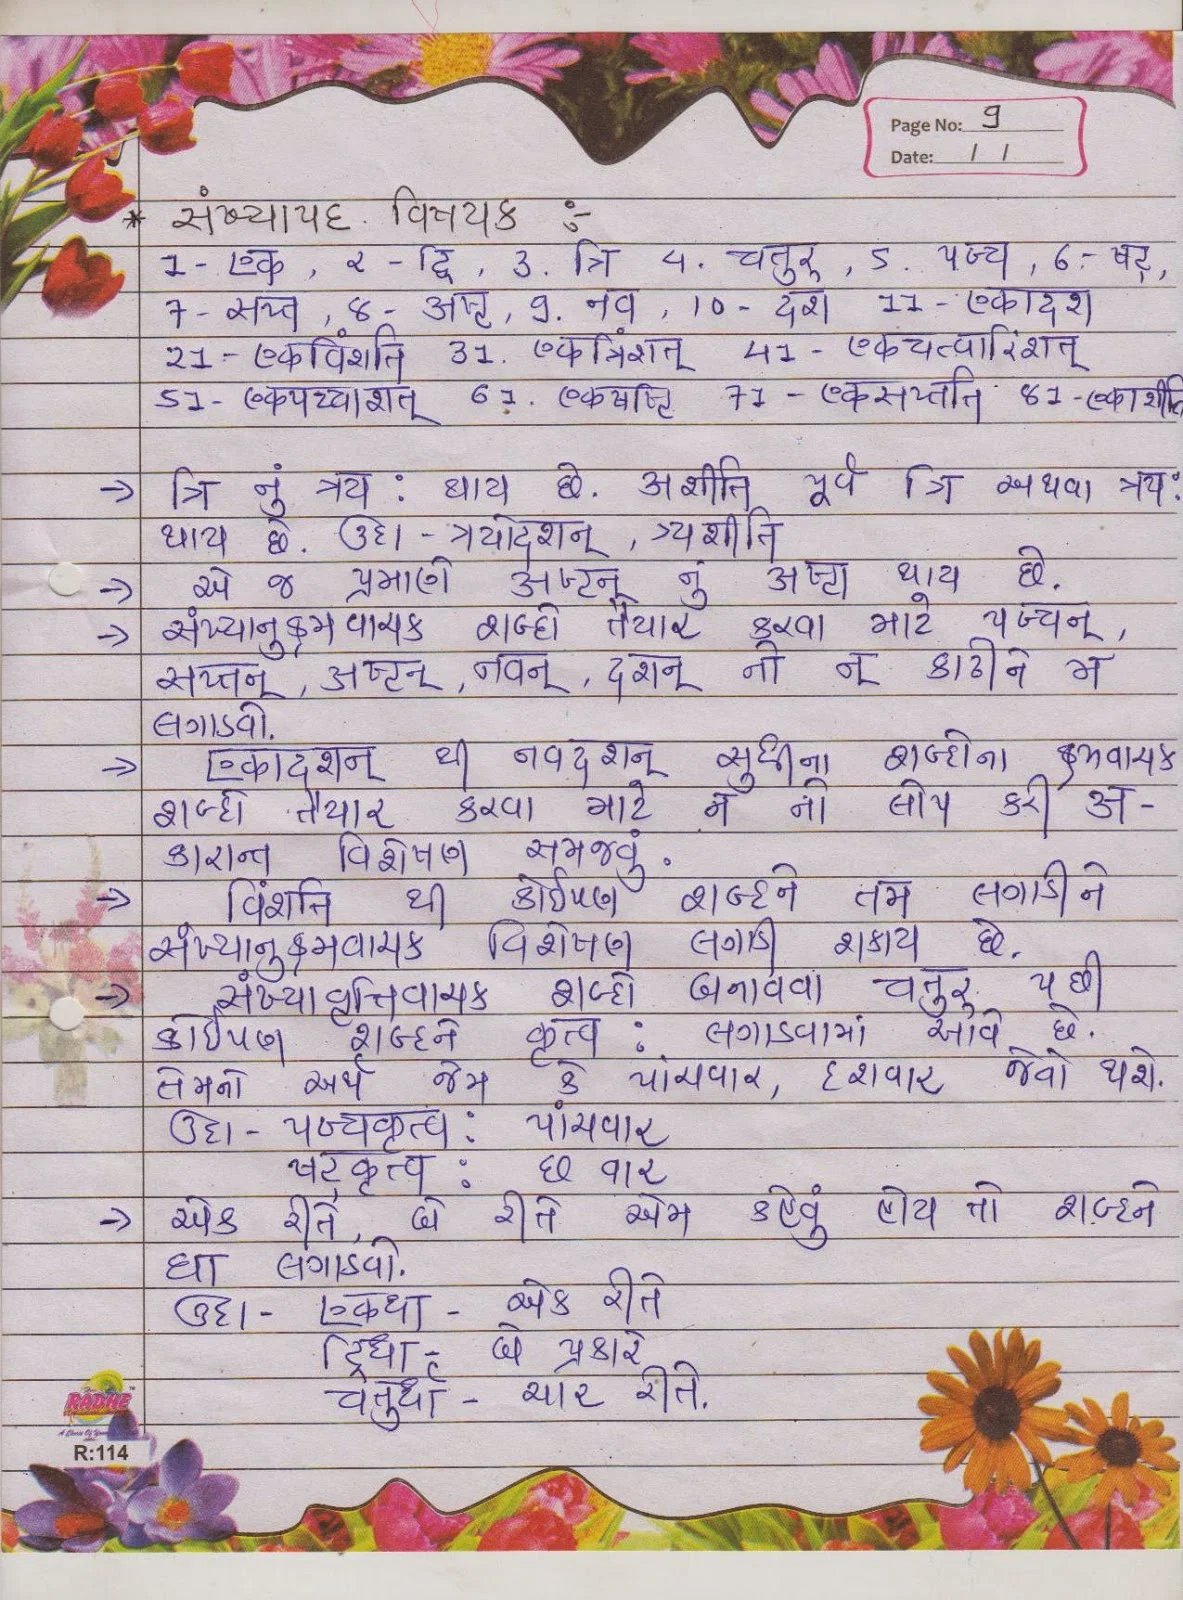 Page No: 9
Date: / /
* સંખ્યાપદ વિષયક :-
1- एक, ૨ - द्वि, 3. त्रि 4. चतुर्, 5. पञ्च, 6.- षट्,
7- सप्त, 8- अष्ट, 9. नव, 10 - दश 11- एकादश
21- एकविंशति 31. एकत्रिंशत् 41- एकचत्वारिंशत्
51- एकपञ्चाशत् 61. एकषष्टि 71 - एकसप्तति 81-एकाशीति
-> त्रि નું त्रय: થાય છે. अशीति પૂર્વે त्रि અથવા त्रय:
થાય છે. ઉદા - त्रयोदशन्, त्र्यशीति
-> એ જ પ્રમાણે अष्टन् નું अष्टा થાય છે.
-> સંખ્યાનુક્રમવાચક શબ્દો તૈયાર કરવા માટે पञ्चन्,
सप्तन्, अष्टन्, नवन्, दशन् નો न् કાઢીને म
લગાડવો.
-> एकादशन् થી नवदशन् સુધીના શબ્દોના ક્રમવાચક
શબ્દો તૈયાર કરવા માટે न નો લોપ કરી अ-
કારાન્ત વિશેષણ સમજવું.
-> विंशति થી કોઈપણ શબ્દને તમ લગાડીને
સંખ્યાનુક્રમવાચક વિશેષણ લગાડી શકાય છે.
-> સંખ્યાવૃત્તિવાચક શબ્દો બનાવવા चतुर् પછી
કોઈપણ શબ્દને कृत्व: લગાડવામાં આવે છે.
તેમનો અર્થ જેમ કે પાંચવાર, દશવાર જેવો થશે.
ઉદા - पञ्चकृत्व: પાંચવાર
षट्कृत्व: છ વાર
-> એક રીતે, બે રીતે એમ કહેવું હોય તો શબ્દને
धा લગાડવો.
ઉદા - एकधा - એક રીતે
द्विधा - બે પ્રકારે
चतुर्धा - ચાર રીતે.
RADHE
R:114